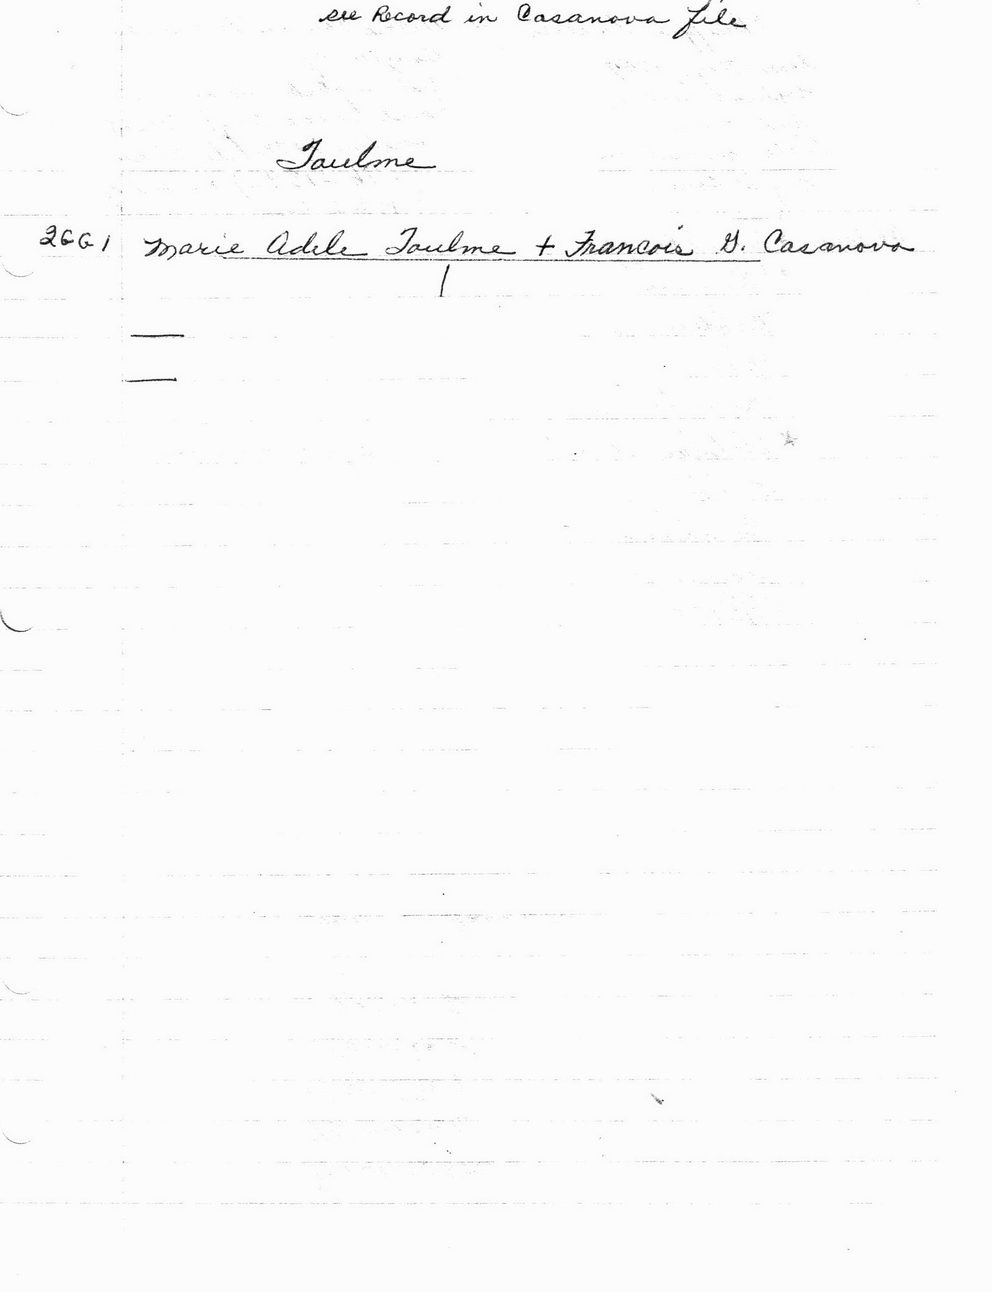 see Record in Casanova file
Toulme
2GG1 Marie Adele Toulme + Francois G. Casanova